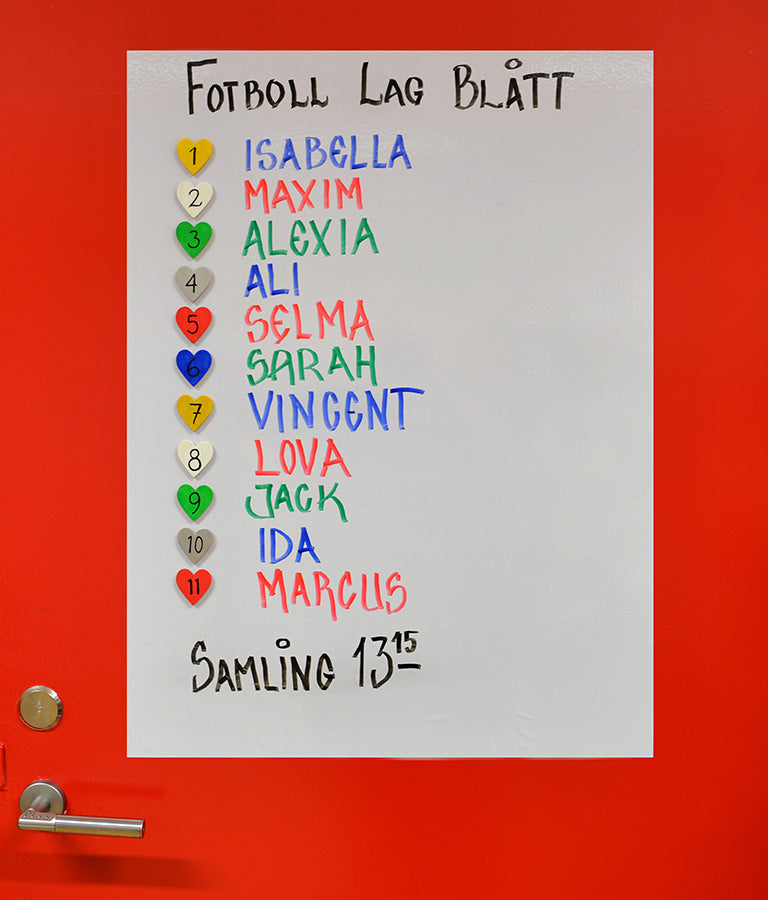 FOTBOLL LAG BLÅTT
1 ISABELLA
2 MAXIM
3 ALEXIA
4 ALI
5 SELMA
6 SARAH
7 VINCENT
8 LOVA
9 JACK
10 IDA
11 MARCUS
SAMLING 13 15